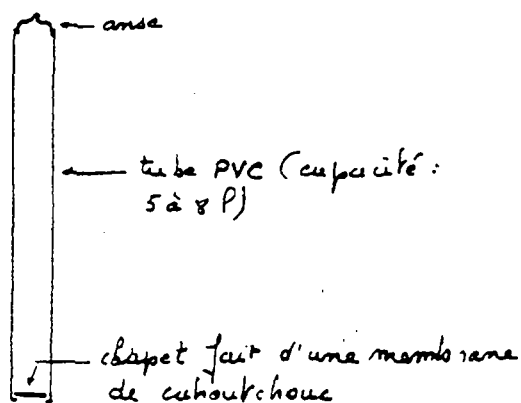 anse
tube PVC (capacité :
5 à 8 l)
clapet fait d'une membrane
de cahoutchouc